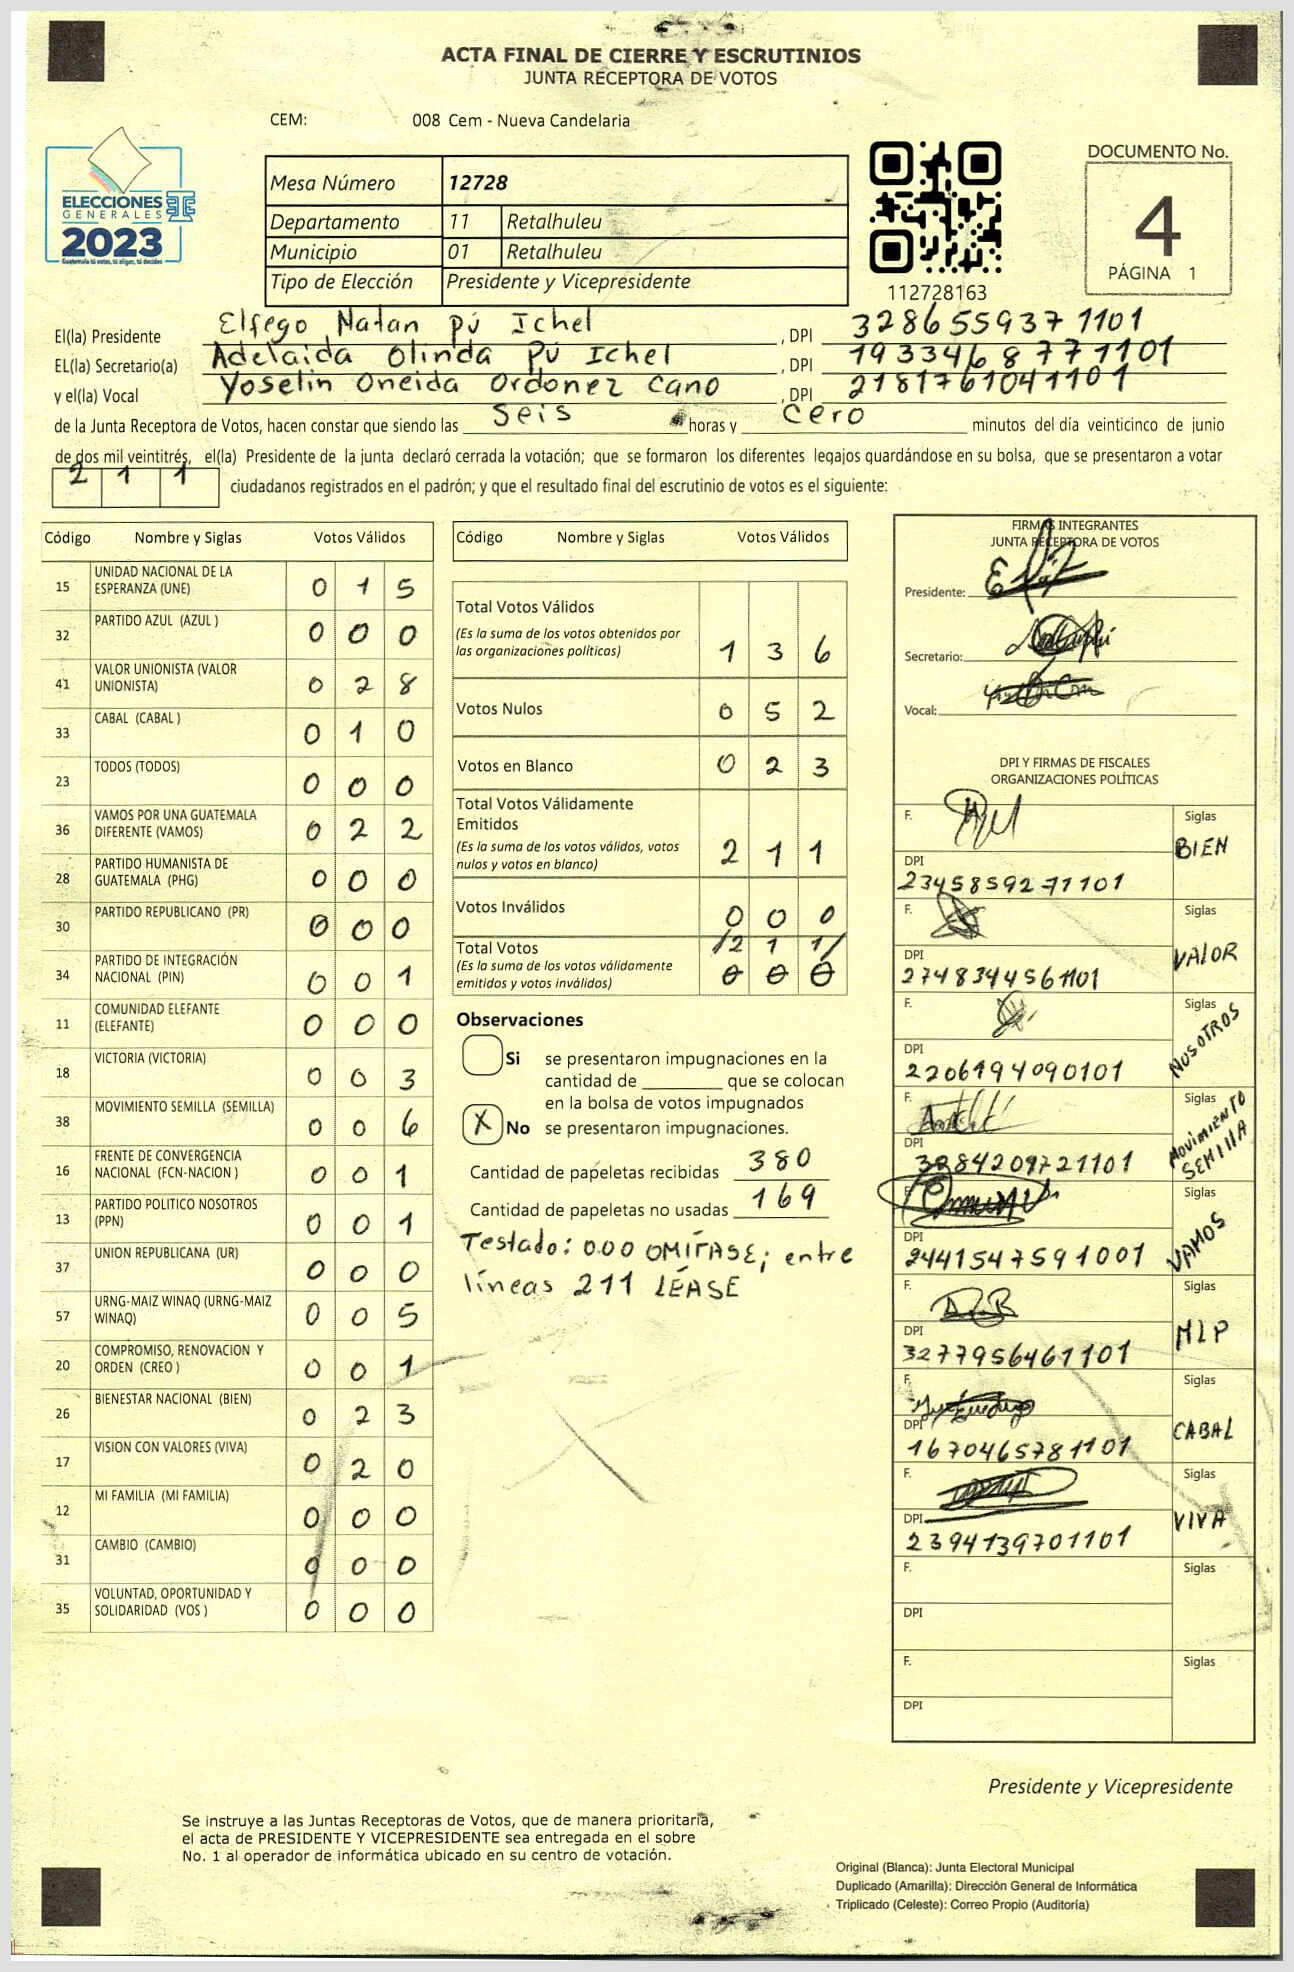 ACTA FINAL DE CIERRE Y ESCRUTINIOS
JUNTA RECEPTORA DE VOTOS
CEM: 008 Cem - Nueva Candelaria
ELECCIONES
GENERALES
2023
Guatemala tú votas, tú eliges, tú decides
Mesa Número 12728
Departamento 11 Retalhuleu
Municipio 01 Retalhuleu
Tipo de Elección Presidente y Vicepresidente
112728163
DOCUMENTO No.
4
PÁGINA 1
El(la) Presidente Elfego Natan pú Ichel , DPI 3286559371101
EL(la) Secretario(a) Adelaida Olinda Pú Ichel , DPI 1933468771101
y el(la) Vocal Yoselin Oneida Ordonez Cano , DPI 2181761041101
de la Junta Receptora de Votos, hacen constar que siendo las seis horas y cero minutos del día veinticinco de junio
de dos mil veintitrés, el(la) Presidente de la junta declaró cerrada la votación; que se formaron los diferentes legajos guardándose en su bolsa, que se presentaron a votar
2 1 1 ciudadanos registrados en el padrón; y que el resultado final del escrutinio de votos es el siguiente:
Código Nombre y Siglas Votos Válidos
15 UNIDAD NACIONAL DE LA
ESPERANZA (UNE) 0 1 5
32 PARTIDO AZUL (AZUL ) 0 0 0
41 VALOR UNIONISTA (VALOR
UNIONISTA) 0 2 8
33 CABAL (CABAL ) 0 1 0
23 TODOS (TODOS) 0 0 0
36 VAMOS POR UNA GUATEMALA
DIFERENTE (VAMOS) 0 2 2
28 PARTIDO HUMANISTA DE
GUATEMALA (PHG) 0 0 0
30 PARTIDO REPUBLICANO (PR) 0 0 0
34 PARTIDO DE INTEGRACIÓN
NACIONAL (PIN) 0 0 1
11 COMUNIDAD ELEFANTE
(ELEFANTE) 0 0 0
18 VICTORIA (VICTORIA) 0 0 3
38 MOVIMIENTO SEMILLA (SEMILLA) 0 0 6
16 FRENTE DE CONVERGENCIA
NACIONAL (FCN-NACION ) 0 0 1
13 PARTIDO POLITICO NOSOTROS
(PPN) 0 0 1
37 UNION REPUBLICANA (UR) 0 0 0
57 URNG-MAIZ WINAQ (URNG-MAIZ
WINAQ) 0 0 5
20 COMPROMISO, RENOVACION Y
ORDEN (CREO ) 0 0 1
26 BIENESTAR NACIONAL (BIEN) 0 2 3
17 VISION CON VALORES (VIVA) 0 2 0
12 MI FAMILIA (MI FAMILIA) 0 0 0
31 CAMBIO (CAMBIO) 0 0 0
35 VOLUNTAD, OPORTUNIDAD Y
SOLIDARIDAD (VOS ) 0 0 0
Código Nombre y Siglas Votos Válidos
Total Votos Válidos
(Es la suma de los votos obtenidos por
las organizaciones políticas) 1 3 6
Votos Nulos 0 5 2
Votos en Blanco 0 2 3
Total Votos Válidamente
Emitidos
(Es la suma de los votos válidos, votos
nulos y votos en blanco) 2 1 1
Votos Inválidos 0 0 0
Total Votos /2 1 1/
(Es la suma de los votos válidamente
emitidos y votos inválidos) 0 0 0
Observaciones
Si se presentaron impugnaciones en la
cantidad de ________ que se colocan
en la bolsa de votos impugnados
X No se presentaron impugnaciones.
Cantidad de papeletas recibidas 380
Cantidad de papeletas no usadas 169
Testado: 000 OMÍTASE; entre
líneas 211 LÉASE
FIRMAS INTEGRANTES
JUNTA RECEPTORA DE VOTOS
Presidente:
Secretario:
Vocal:
DPI Y FIRMAS DE FISCALES
ORGANIZACIONES POLÍTICAS
F. Siglas
BIEN
DPI
2345859271101
F. Siglas
VALOR
DPI
2748344561101
F. Siglas
NOSOTROS
DPI
2206194090101
F. Siglas
MOVIMIENTO
SEMILLA
DPI
3284209721101
F. Siglas
VAMOS
DPI
2441547591001
F. Siglas
MLP
DPI
3277956461101
F. Siglas
CABAL
DPI
1670465781101
F. Siglas
VIVA
DPI
2394139701101
F. Siglas
DPI
F. Siglas
DPI
Presidente y Vicepresidente
Se instruye a las Juntas Receptoras de Votos, que de manera prioritaria,
el acta de PRESIDENTE Y VICEPRESIDENTE sea entregada en el sobre
No. 1 al operador de informática ubicado en su centro de votación.
Original (Blanca): Junta Electoral Municipal
Duplicado (Amarilla): Dirección General de Informática
Triplicado (Celeste): Correo Propio (Auditoría)